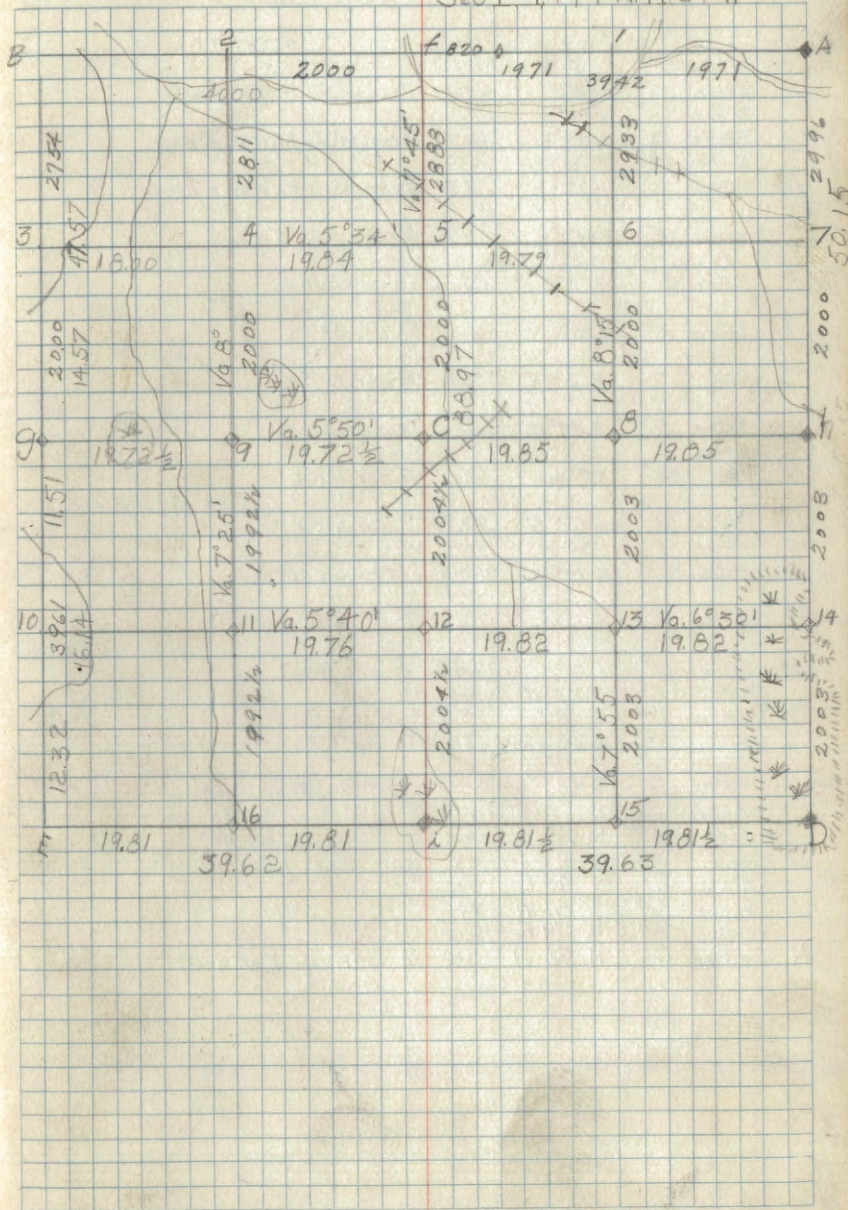 B 2 f 820 1 A
2000 1971 3942 1971
4000
2754 2811 Va. 7° 45' 2883 2933 2996
3 4 Va. 5° 34' 5 6 7
47.57 18.00 19.84 19.79 50.15
20.00 14.57 Va 8° 2000 2000 88.97 Va. 8° 15' 2000 2000
g 9 Va. 5° 50' C 8
19.72 ½ 19.72 ½ 19.85 19.85
11.51 Va. 7° 25' 1992½ 2004½ 2003 2003
10 11 Va. 5° 40' 12 13 Va. 6° 30' 14
3961 16.14 19.76 19.82 19.82
12.32 1992½ 2004½ Va. 7° 55 2003 2003
m 16 i 15 D
19.81 19.81 19.81½ 19.81½
39.62 39.63